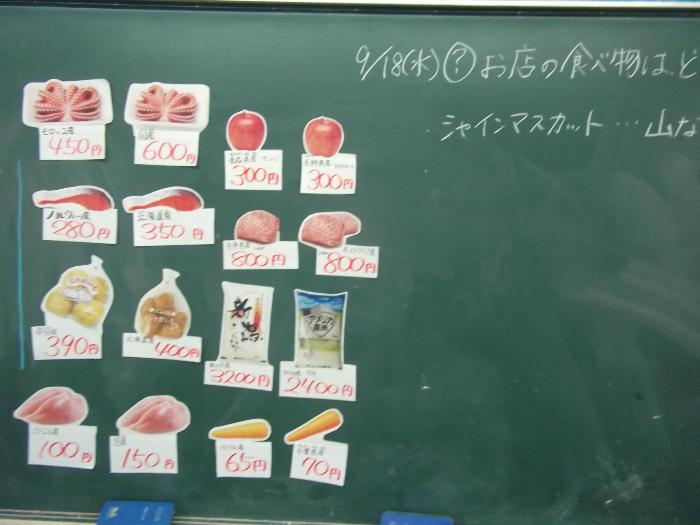 9/18(水)?お店の食べ物は、ど
・シャインマスカット…山な
モロッコ産
450円
国産
600円
青森県産
300円
長野県産
300円
ノルウェー産
280円
北海道産
350円
800円
800円
390円
北海道産
400円
新潟
3200円
アメリカ
2400円
ブラジル産
100円
国産
150円
65円
千葉県産
70円